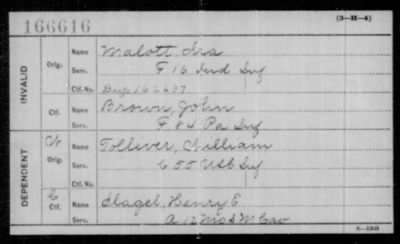 166616
(3-II-4)
INVALID
Orig. Name Malott Ira
Serv. F 16 Ind Inf
Ctf. No. Dup 162627
Ctf. Name Brown, John
Serv. F 84 Pa Inf
DEPENDENT
Orig. Name Tolliver, William
Serv. C 55 US C Inf
Ctf. No.
C
Ctf. Name Slagel, Henry E
Serv. A 12 Mo S M Cav